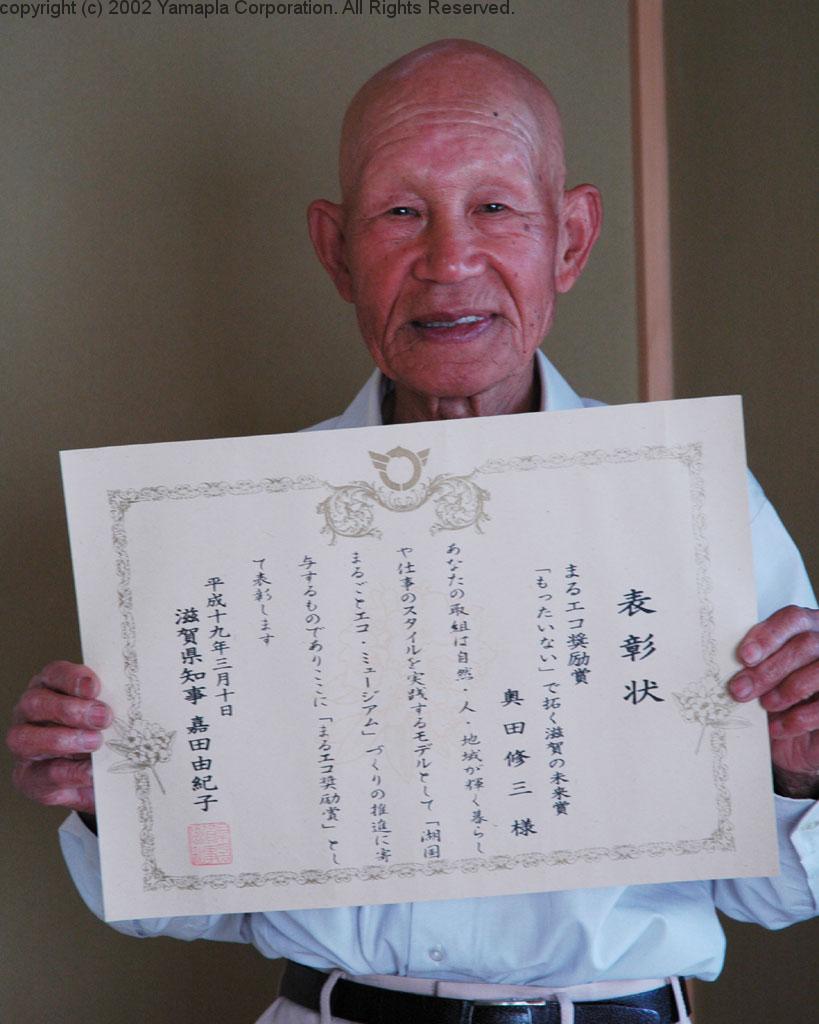 copyright (c) 2002 Yamapla Corporation. All Rights Reserved.
表彰状
まるエコ奨励賞
「もったいない」で拓く滋賀の未来賞
奥田修三 様
あなたの取組は自然・人・地域が輝く暮らし
や仕事のスタイルを実践するモデルとして「湖国
まるごとエコ・ミュージアム」づくりの推進に寄
与するものでありここに「まるエコ奨励賞」とし
て表彰します
平成十九年三月十日
滋賀県知事 嘉田由紀子